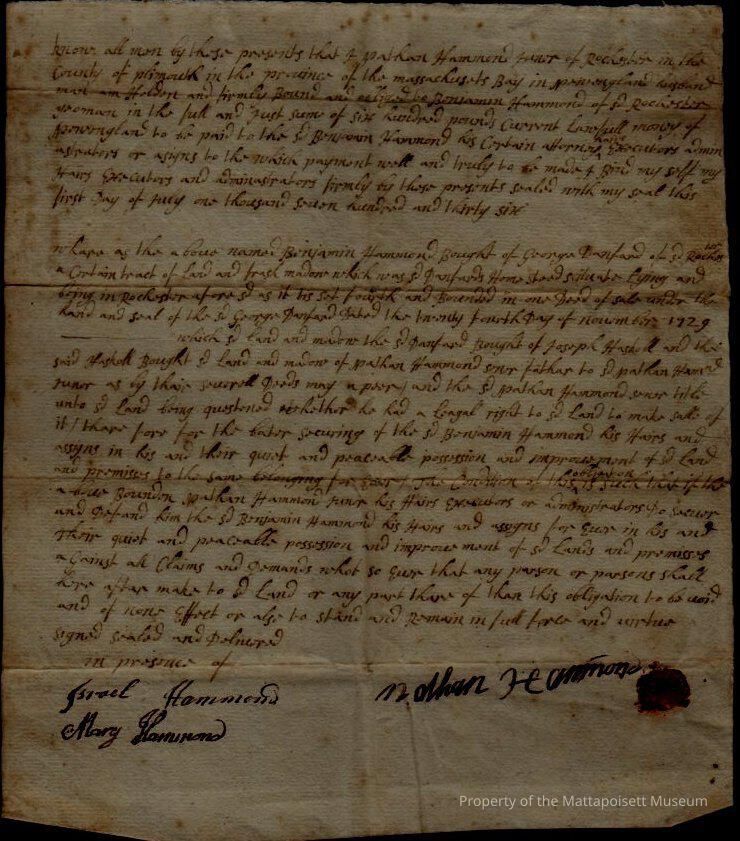 Know all men by these presents that I Nathan Hammond juner of Rochester in the
County of plimouth in the province of the massachusets Bay in Newengland husband
man am Holden and firmly Bound and obliged to Benjamin Hammond of sd Rochester
yeoman in the full and Just sume of six hundred pound Current Lawfull money of
Newengland to be paid to the sd Benjamin Hammond his Certain attorny Executors admin
astrators or asigns to the which payment well and truly to be made I Bind my self my
Hairs Executors and adminastrators firmly by these presents sealed with my seal this
first Day of July one thousand seuen hundred and thirty six
whare as the aboue named Benjamin Hammond Bought of George Danfard of sd Rochester
a Certain tract of Land and frash madow which was sd Danfards Home steed situate Lying and
being in Rochester afore sd as it tis set fourth and Bounded in one Deed of sale under the
hand and seal of the sd George Danfard Dated the twenty fourth Day of november 1729
which sd Land and madow the sd Danfard Bought of Joseph Haskoll and the
said Haskoll Bought sd Land and madow of Nathan Hammond senr father to sd Nathan Hamnd
juner as by thair seuerell Deeds may apeer and the sd Nathan Hammond senr title
unto sd Land being questened whether he had a Leagal right to sd Land to make sale of
it / thare fore for the bater securing of the sd Benjamin Hammond his Hairs and
assigns in his and their quiet and peaceable possession and improuement of sd Land
and premises to the same belonging for Euer / The Condition of this obligation is such that if the
aboue Boundon Nathan Hammond juner his Hairs Executors or administrators Do secuer
and Defand him the sd Benjamin Hammond his Hairs and assigns for Euer in his and
Their quiet and peaceable possession and improuement of sd Lands and premisses
a Gainst all Claims and Demands whot so Euer that any parson or parsons shall
here after make to sd Land or any part thare of than this obligation to be uoid
and of none Effect or alse to stand and Remain in full force and virtue
Signed sealed and Deliuered
in presence of
Israel Hammond
Nathan Hammond
Mary Hammond
Property of the Mattapoisett Museum